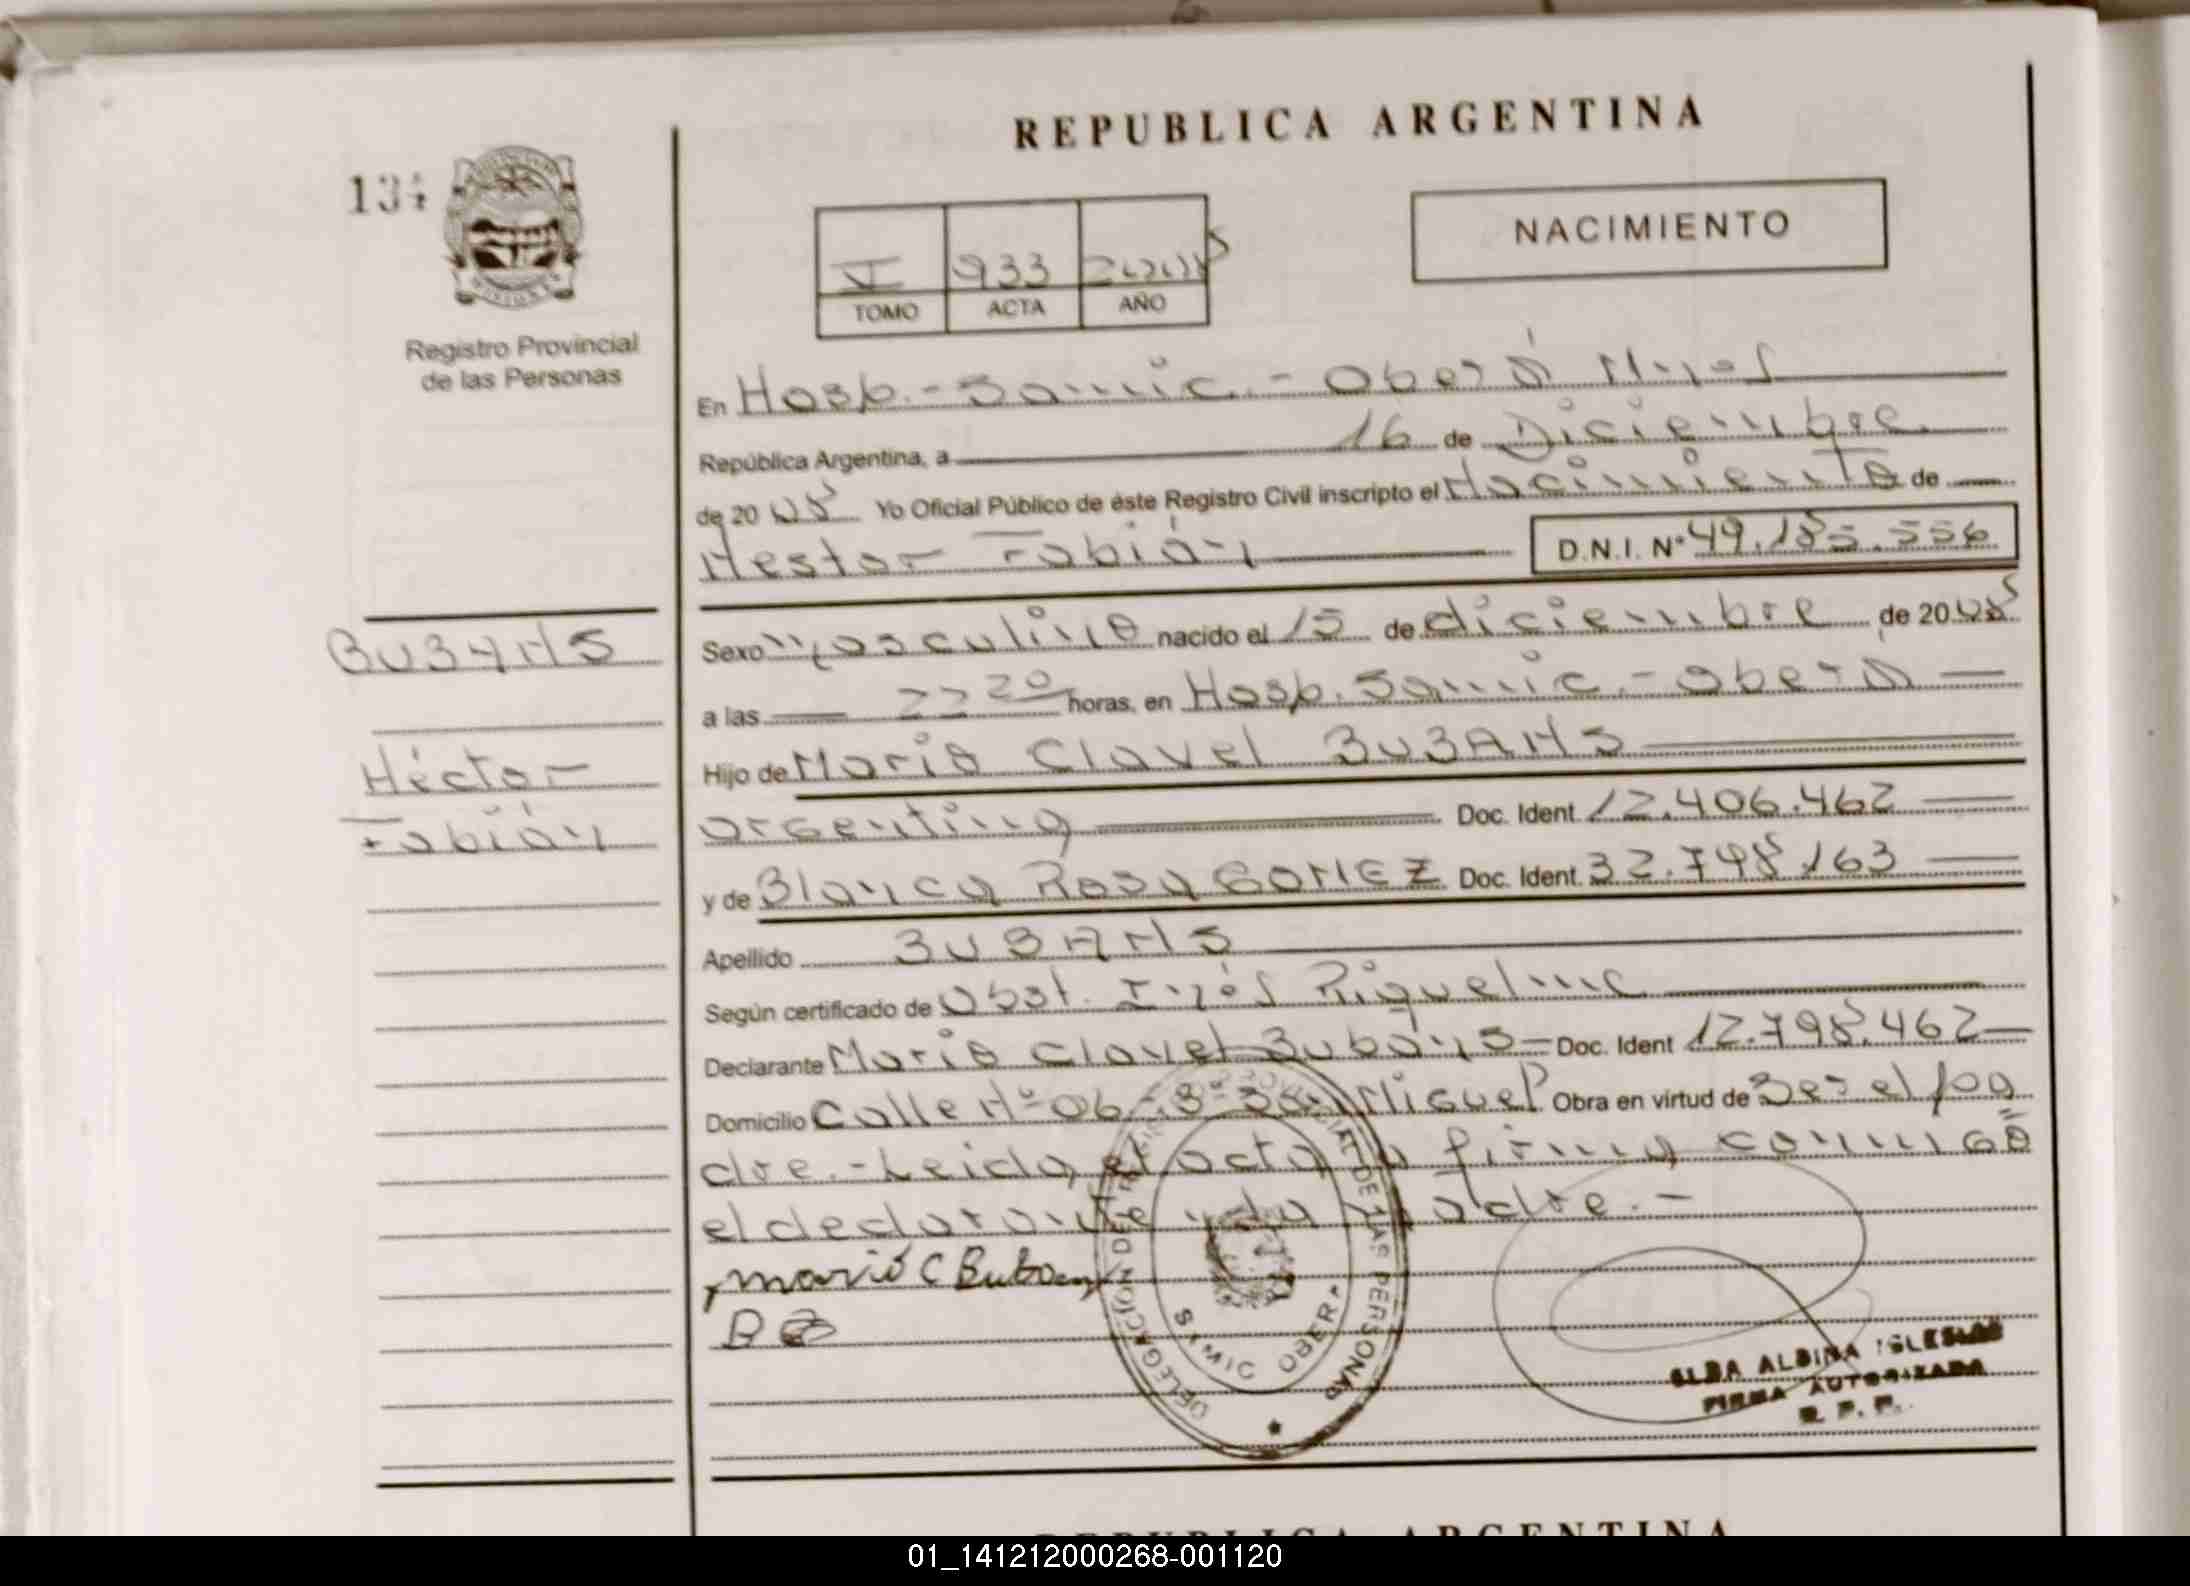 REPUBLICA ARGENTINA
13
NACIMIENTO
V 933 2008
TOMO ACTA AÑO
Registro Provincial
de las Personas
En Hosp.-Samic.-Oberá Mnes
República Argentina, a 16 de Diciembre
de 2008 Yo Oficial Público de éste Registro Civil inscripto el Nacimiento de
Hestor Fabián D.N.I. Nº 49.185.556
BUBANS
Sexo masculino nacido el 15 de diciembre de 2008
a las 22 20 horas, en Hosp. Samic.-Oberá
Héctor
Fabián
Hijo de Mario Clavel BUBANS
argentino Doc. Ident. 12.406.462
y de Blanca Rosa GOMEZ Doc. Ident. 32.748.163
Apellido BUBANS
Según certificado de Obst. Inés Riquelme
Declarante Mario Clavel Bubans Doc. Ident 12.798.462
Domicilio Calle Nº 06 Miguel Obra en virtud de Ser el pa
dre.-Leída el acta, la firma conmigo
el declarante y la madre.-
mario C Buban
DELEGACIÓN DEL REGISTRO PROVINCIAL DE LAS PERSONAS
SAMIC OBERA
ELBA ALBINA IGLESIAS
FIRMA AUTORIZADA
R. P. P.
REPUBLICA ARGENTINA
01_141212000268-001120